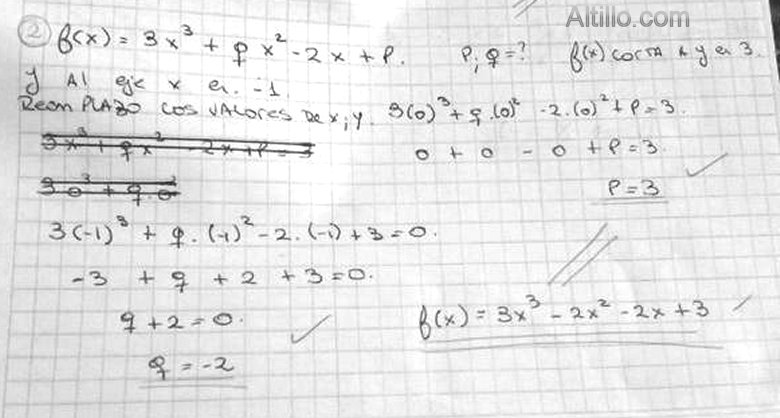 Altillo.com
② f(x) = 3x³ + qx² - 2x + P. P; q = ? f(x) corta a y en 3.
y Al eje x en -1.
Reem PLAZO los VALORES De x; y. 3(0)³ + q.(0)² - 2.(0)² + P = 3.
3x³ + qx² - 2x + P = 3
0 + 0 - 0 + P = 3.
3 0³ + q.0²
P = 3
3(-1)³ + q.(-1)² - 2.(-1) + 3 = 0.
-3 + q + 2 + 3 = 0.
q + 2 = 0.
f(x) = 3x³ - 2x² - 2x + 3
q = -2